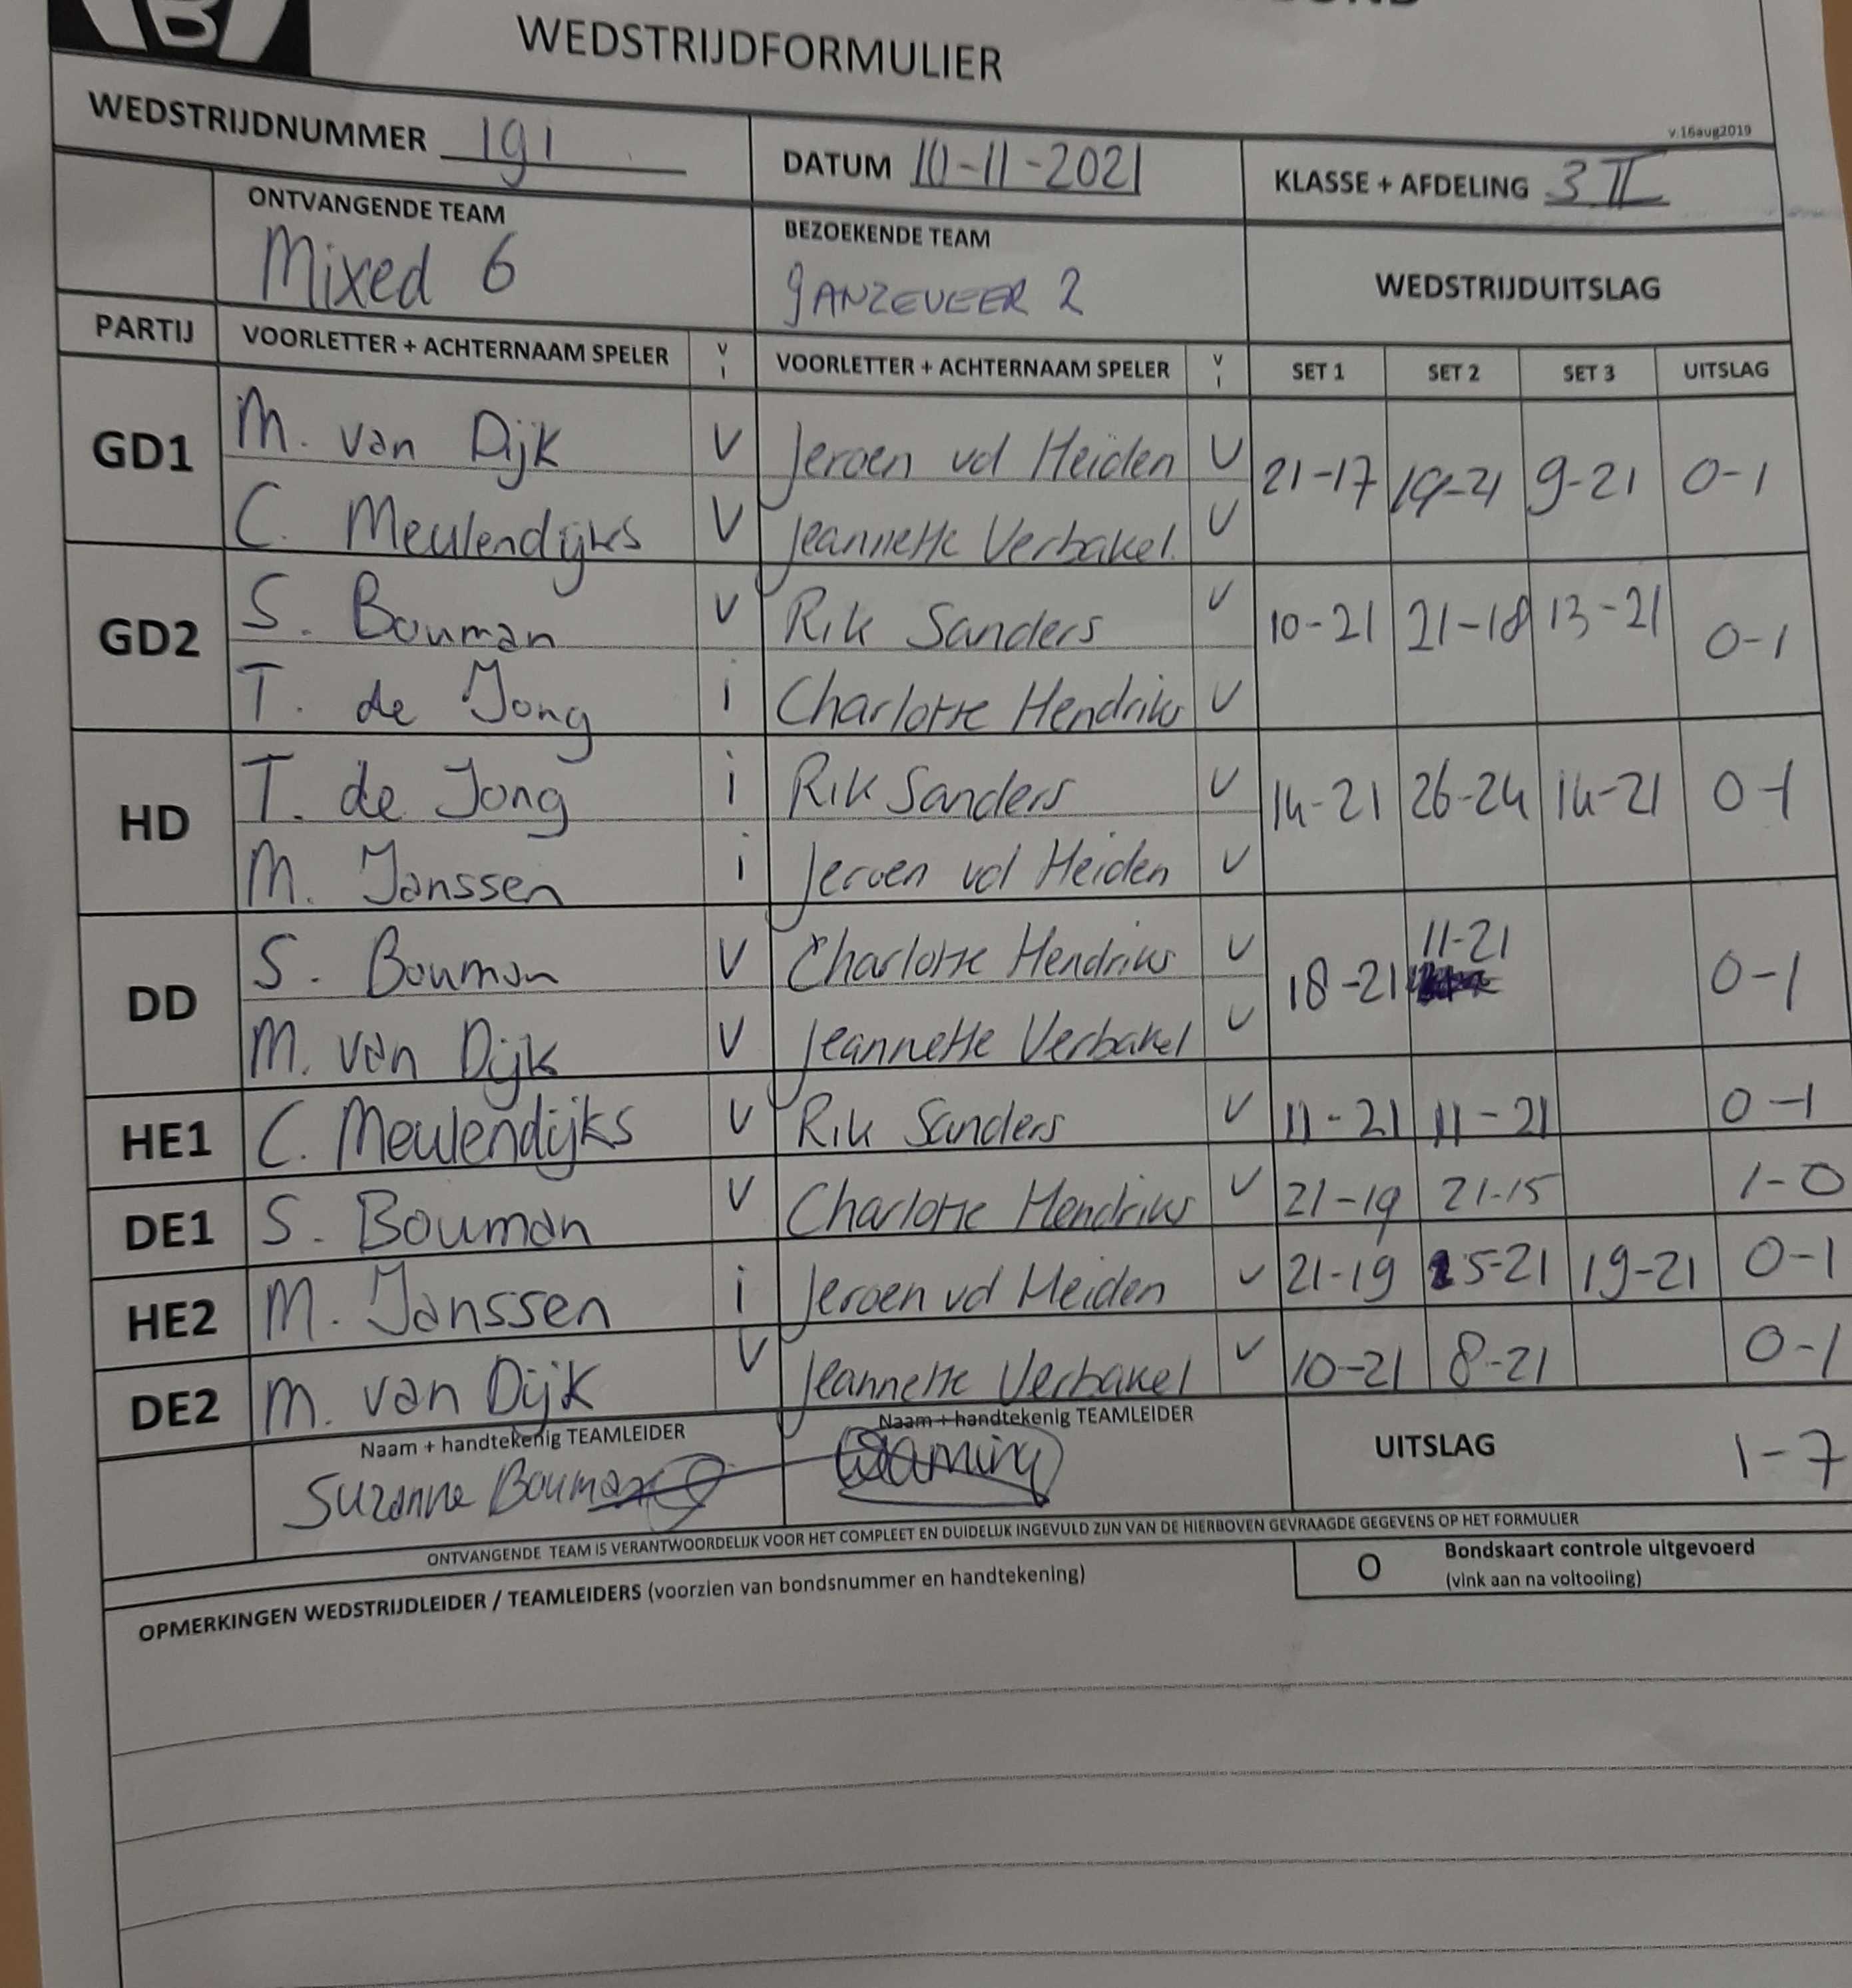 WEDSTRIJDFORMULIER
v.16aug2019
WEDSTRIJDNUMMER 191 DATUM 10-11-2021 KLASSE + AFDELING 3 II
ONTVANGENDE TEAM BEZOEKENDE TEAM WEDSTRIJDUITSLAG
Mixed 6 GANZEVEER 2
PARTIJ VOORLETTER + ACHTERNAAM SPELER V I VOORLETTER + ACHTERNAAM SPELER V I SET 1 SET 2 SET 3 UITSLAG
GD1 M. van Dijk V Jeroen vd Heiden V 21-17 19-21 9-21 0-1
C. Meulendijks V Jeannette Verbakel. V
GD2 S. Bouman V Rik Sanders V 10-21 21-18 13-21 0-1
T. de Jong i Charlotte Hendriks V
HD T. de Jong i Rik Sanders V 14-21 26-24 14-21 0-1
M. Janssen i Jeroen vd Heiden V
DD S. Bouman V Charlotte Hendriks V 18-21 11-21 0-1
M. van Dijk V Jeannette Verbakel V
HE1 C. Meulendijks V Rik Sanders V 11-21 11-21 0-1
DE1 S. Bouman V Charlotte Hendriks V 21-19 21-15 1-0
HE2 M. Janssen i Jeroen vd Heiden V 21-19 15-21 19-21 0-1
DE2 M. van Dijk V Jeannette Verbakel V 10-21 8-21 0-1
Naam + handtekenig TEAMLEIDER Naam + handtekenig TEAMLEIDER UITSLAG 1-7
Suzanne Bouman
ONTVANGENDE TEAM IS VERANTWOORDELIJK VOOR HET COMPLEET EN DUIDELIJK INGEVULD ZIJN VAN DE HIERBOVEN GEVRAAGDE GEGEVENS OP HET FORMULIER
O Bondskaart controle uitgevoerd
(vink aan na voltooiing)
OPMERKINGEN WEDSTRIJDLEIDER / TEAMLEIDERS (voorzien van bondsnummer en handtekening)